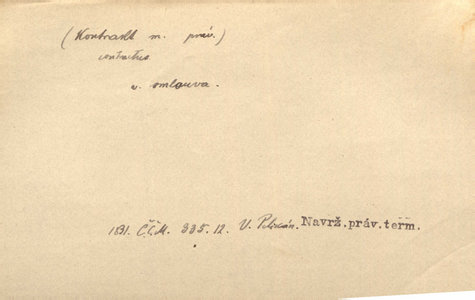 (Kontrakt m. práv.)
contractus
v. smlouva.
1831. Č.Č.M. 335.12. V. Pelikán. Navrž.práv.term.